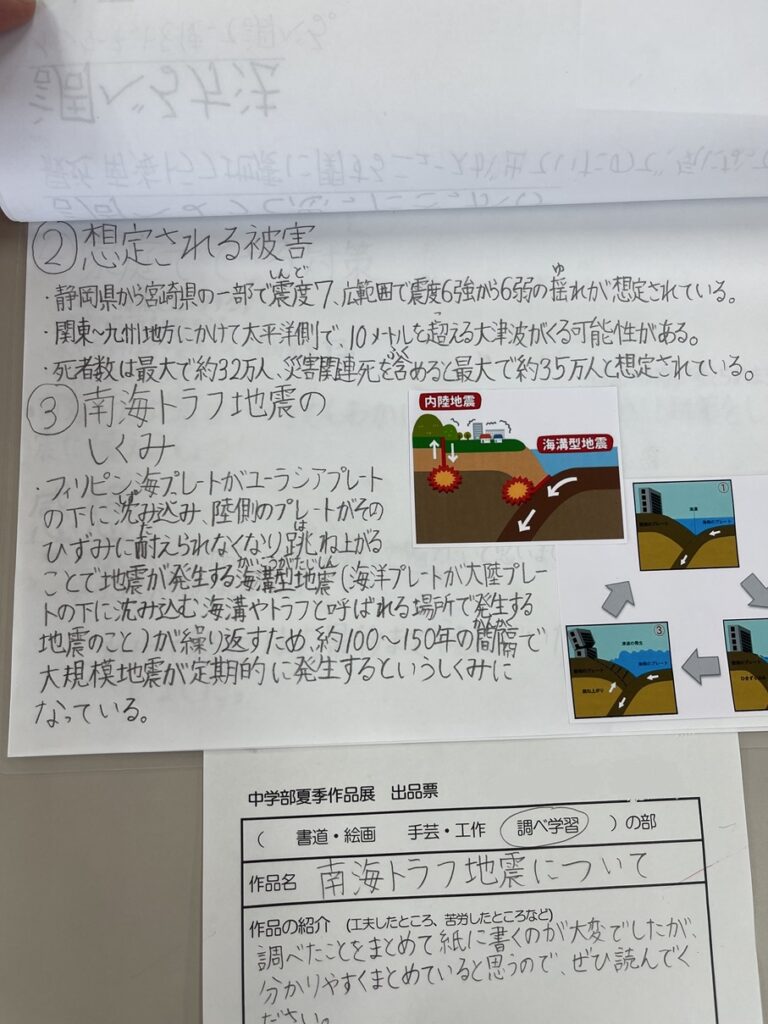 調べる方法
②想定される被害
しんど ゆ
・静岡県から宮崎県の一部で震度7、広範囲で震度6強から6弱の揺れが想定されている。
こ
・関東~九州地方にかけて太平洋側で、10メートルを超える大津波がくる可能性がある。
ふく
・死者数は最大で約32万人、災害関連死を含めると最大で約35万人と想定されている。
③南海トラフ地震の
しくみ
内陸地震
海溝型地震
・フィリピン海プレートがユーラシアプレート
の下に沈み込み、陸側のプレートがその
ひずみに耐えられなくなり跳ね上がる
かいこうがたじしん
ことで地震が発生する海溝型地震(海洋プレートが大陸プレー
トの下に沈み込む海溝やトラフと呼ばれる場所で発生する
かんかく
地震のこと)が繰り返すため、約100~150年の間隔で
大規模地震が定期的に発生するというしくみに
なっている。
①
③
中学部夏季作品展 出品票
( 書道・絵画 手芸・工作 調べ学習 )の部
作品名 南海トラフ地震について
作品の紹介 (工夫したところ、苦労したところなど)
調べたことをまとめて紙に書くのが大変でしたが、
分かりやすくまとめていると思うので、ぜひ読んでく
ださい。